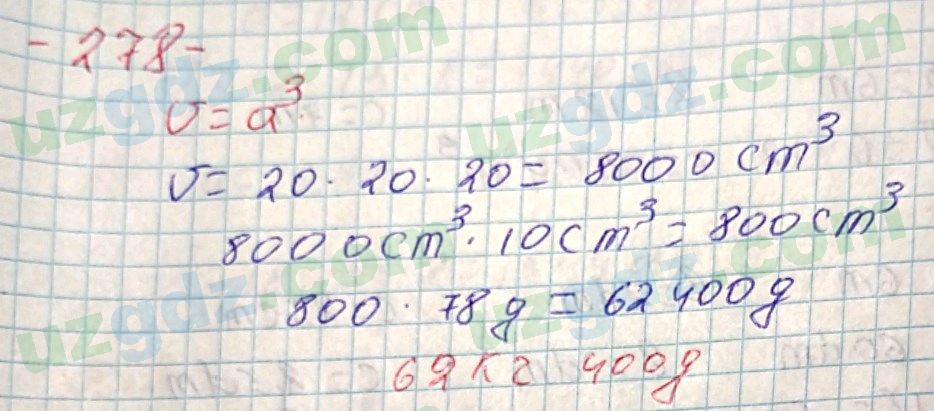 -278-
V=a³
V= 20· 20· 20= 8000cm³
8000cm³· 10cm³=800cm³
800· 78g=62400g
62кг 400g
uzgdz.com